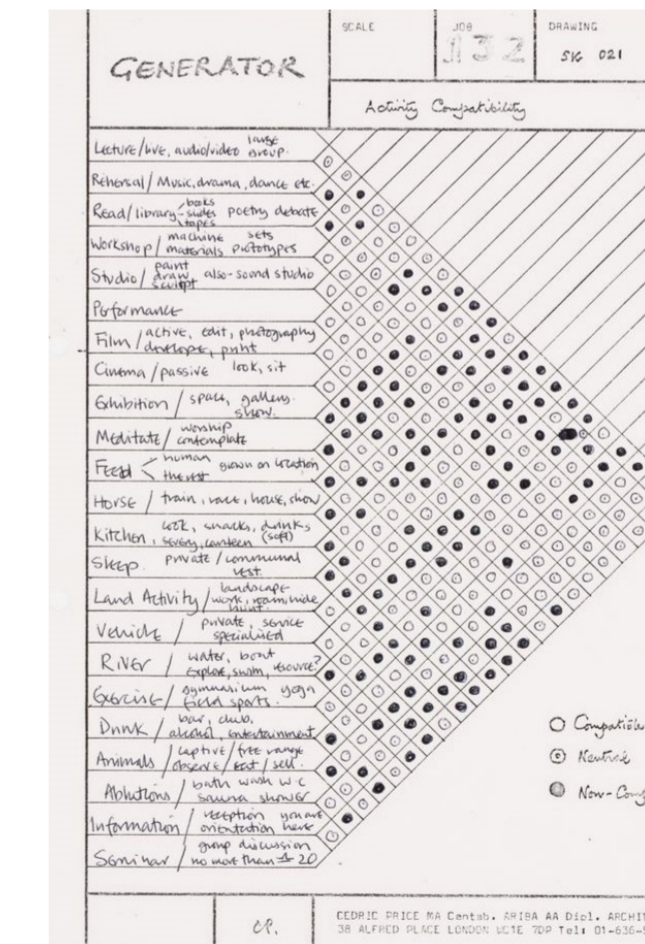 SCALE
JOB
132
DRAWING
SK 021
GENERATOR
Activity Compatibility
Lecture/live, audio/video large group.
Rehersal / Music, drama, dance etc.
Read/library books slides tapes poetry debate
Workshop / machine sets materials prototypes
Studio / paint draw sculpt also-sound studio
Performance
Film / active, edit, photography develope, print
Cinema / passive look, sit
Exhibition / space, gallery. show.
Meditate / worship contemplate
Feed human the rest grown on location
Horse / train, race, house, show
Kitchen, snacks, drinks (soft) canteen
Sleep. private / communal rest.
Land Activity / landscape work, roam, hide hunt.
Vehicle / private, service specialised
River / water, boat explore, swim, resource?
Exercise / gymnasium yoga field sports.
Drink / bar, club, alcohol, entertainment
Animals / captive / free range observe / eat / sell.
Ablutions / bath wash W.C sauna shower
Information / reception you are here orientation
Seminar / group discussion no more than 20
Compatible
Neutral
Non-Comp
CP.
CEDRIC PRICE MA Cantab. ARIBA AA Dipl. ARCHIT
38 ALFRED PLACE LONDON WC1E 7DP Tel: 01-636-5